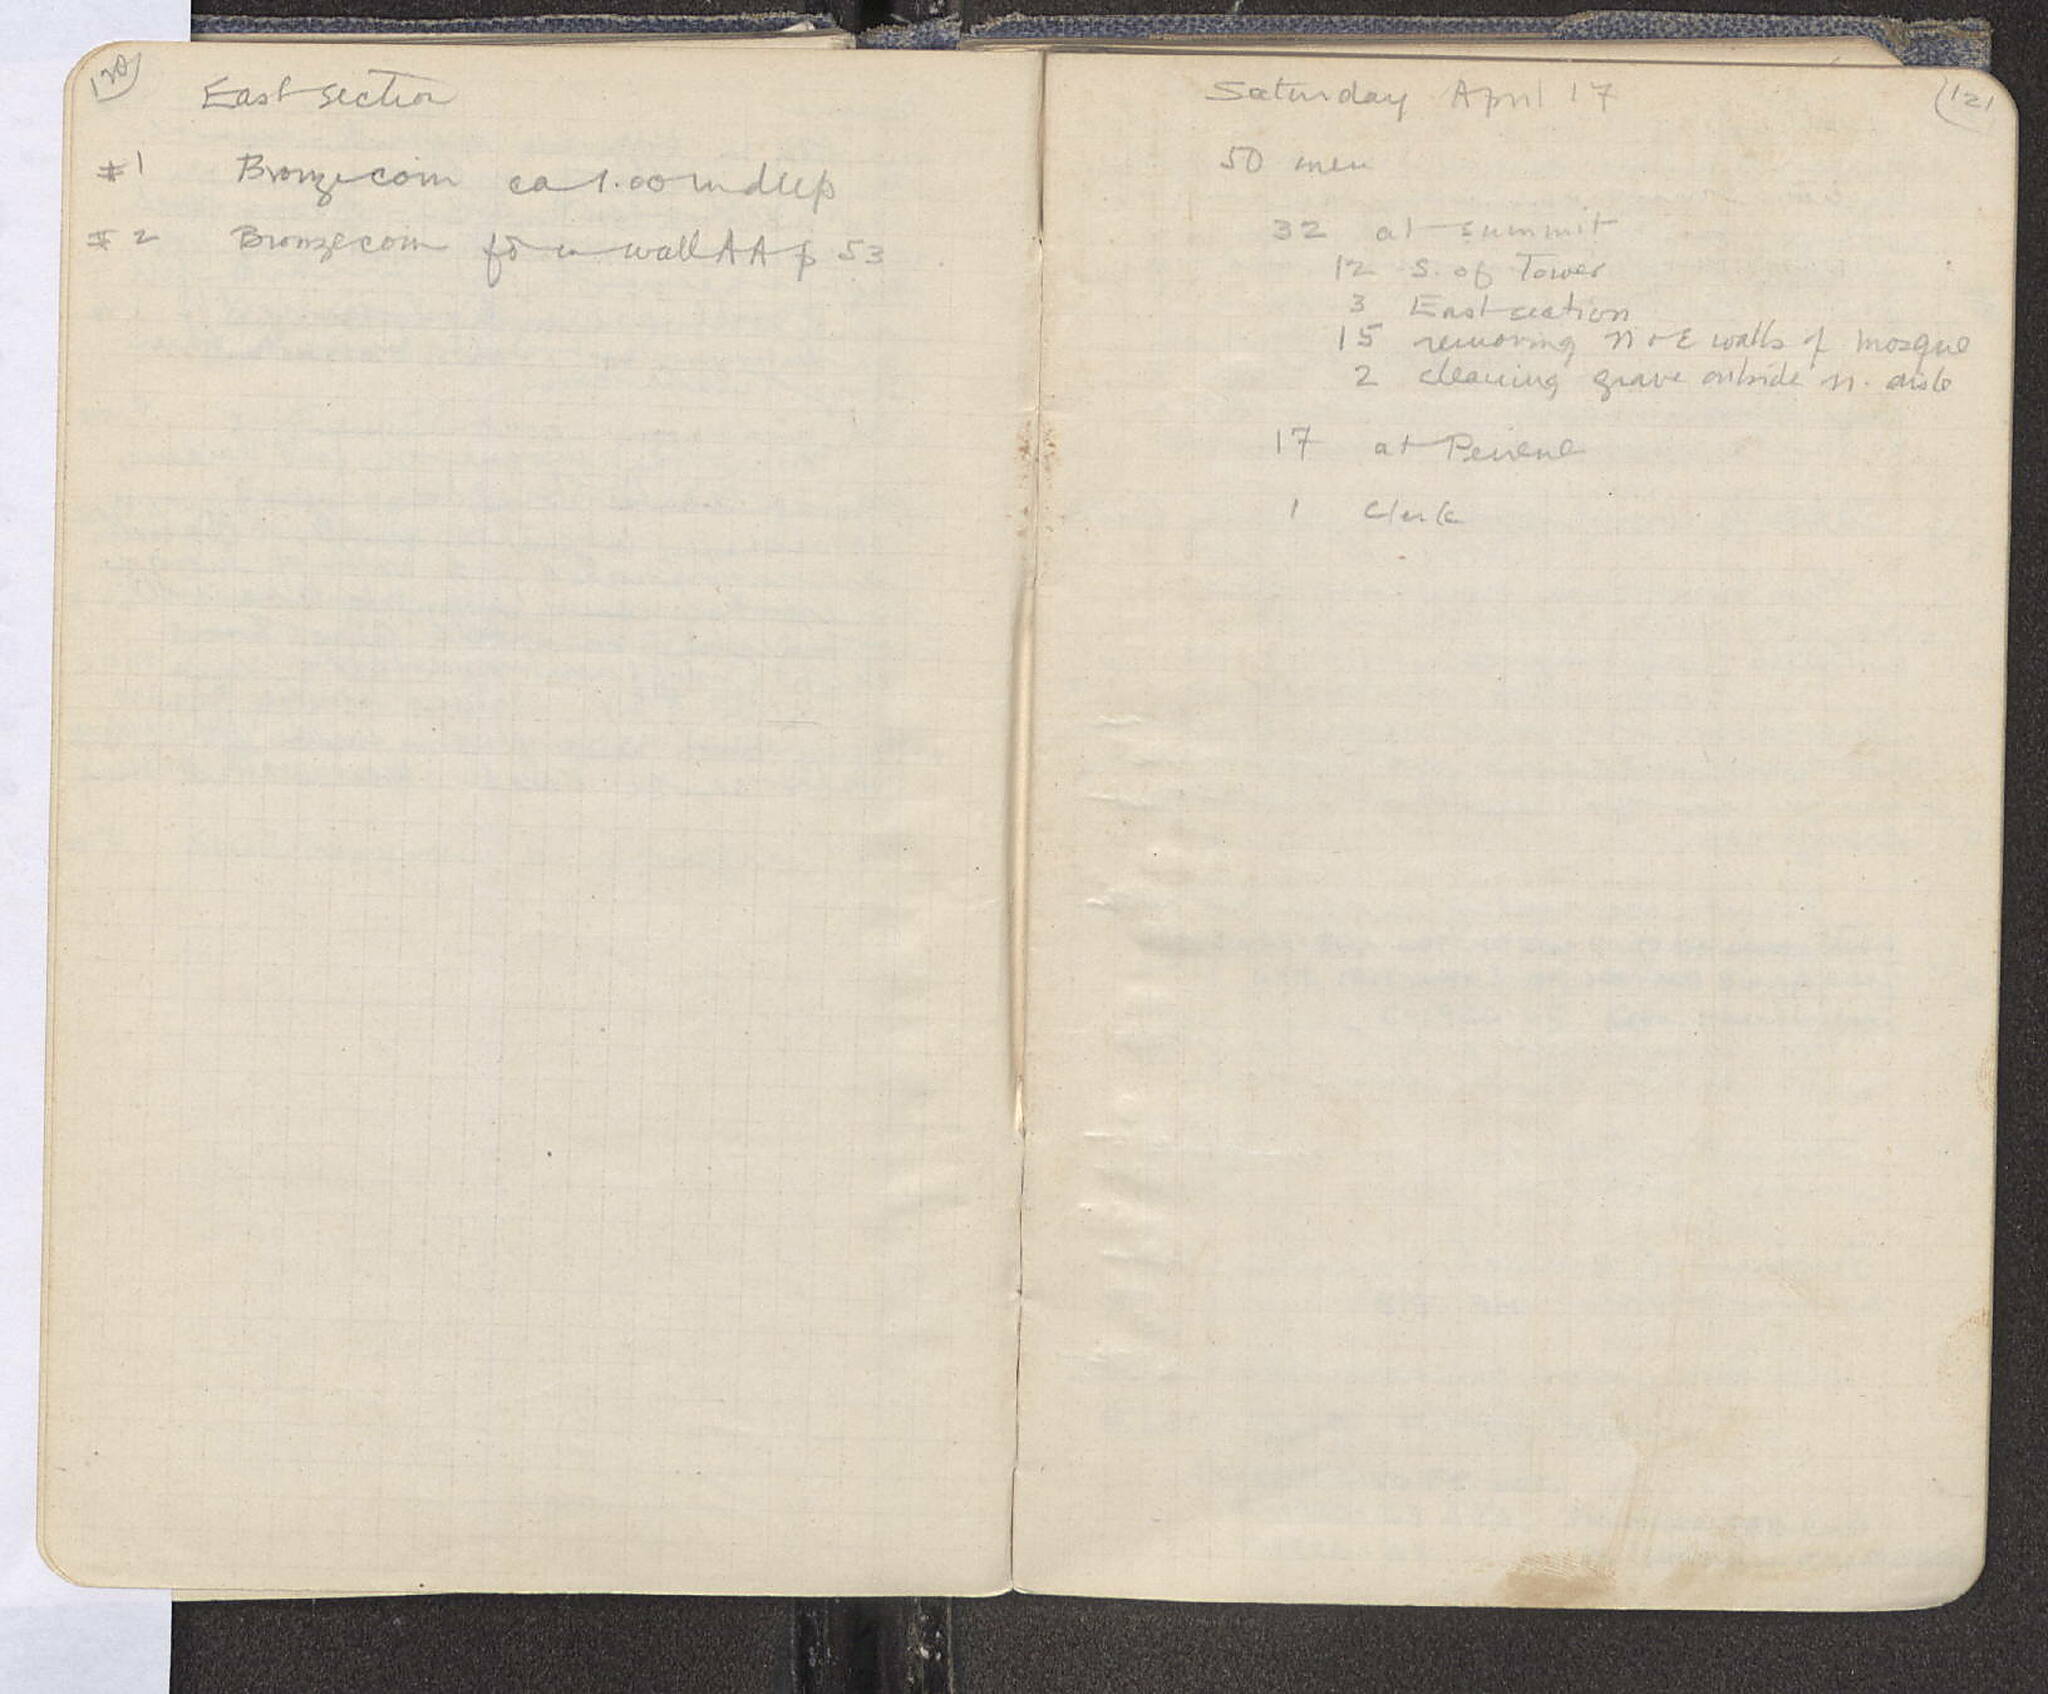 120
East section
#1 Bronze coin ca 1.00 m deep
#2 Bronze coin fd in wall AA p 53
121
Saturday April 17
50 men
32 at summit
12 S. of Tower
3 East section
15 removing N + E walls of mosque
2 cleaning grave outside n. aisle
17 at Peirene
1 Clerk